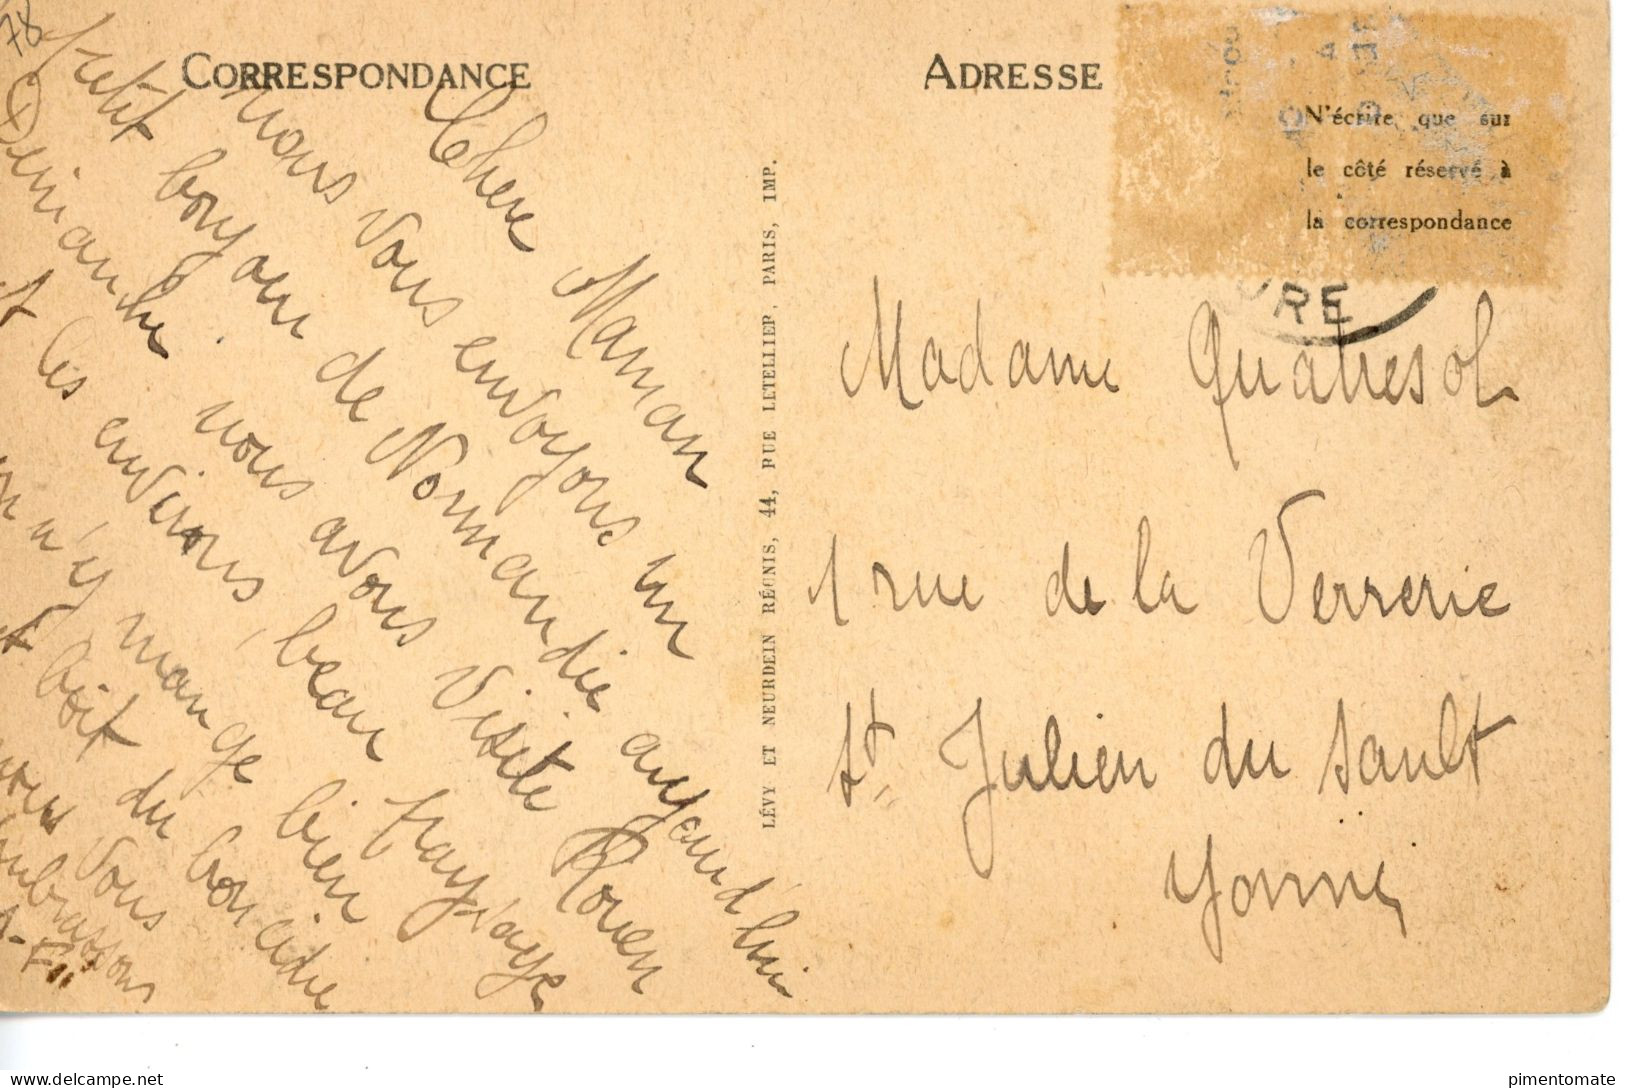 78
CORRESPONDANCE
Chere Maman
nous vous envoyons un
petit bonjour de Normandie aujourd'hui
Dimanche nous avons visité Rouen
et les environs, beau pays
on n'y mange bien
et boit du bon cidre
nous vous
embrassons
LÉVY ET NEURDEIN RÉUNIS, 44, RUE LETELLIER, PARIS, IMP.
ADRESSE
N'écrire que sur
le côté réservé à
la correspondance
URE
Madame Quatresol
1 rue de la Verrerie
St Julien du Sault
Yonne
www.delcampe.net
pimentomate